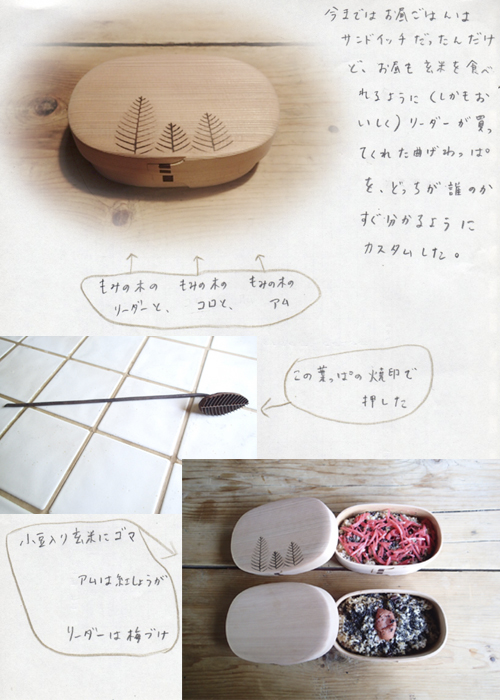 今まではお昼ごはんは
サンドイッチだったんだけ
ど、お昼も玄米を食べ
れるように(しかもお
いしく)リーダーが買っ
てくれた曲げわっぱ
を、どっちが誰のか
すぐ分かるように
カスタムした。
もみの木の
リーダーと、
もみの木の
コロと、
もみの木の
アム
この葉っぱの焼印で
押した
小豆入り玄米にゴマ
アムは紅しょうが
リーダーは梅づけ